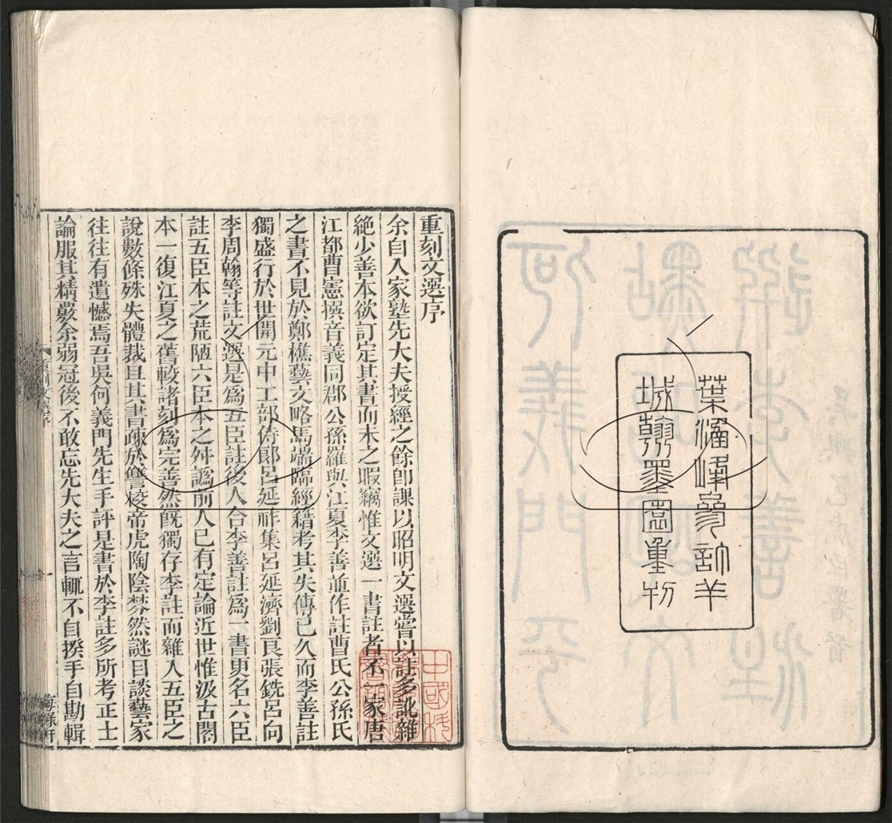 葉涵峰參訂羊
城翰墨園重刊
重刻文選序
余自入家塾先大夫授經之餘卽課以昭明文選嘗以註多訛雜
絶少善本欲訂定其書而未之暇竊惟文選一書註者不一家唐
江都曹憲撰音義同郡公孫羅與江夏李善並作註曹氏公孫氏
之書不見於鄭樵藝文略馬端臨經籍考其失傳已久而李善註
獨盛行於世開元中工部侍郞呂延祚集呂延濟劉良張銑呂向
李周翰等註文選是爲五臣註後人合李善註爲一書更名六臣
註五臣本之荒陋六臣本之舛譌前人已有定論近世惟汲古閣
本一復江夏之舊較諸刻爲完善然旣獨存李註而雜入五臣之
說數條殊失體裁且其書疎於讐挍帝虎陶陰棼然謎目談藝家
往往有遺憾焉吾吳何義門先生手評是書於李註多所考正士
論服其精覈余弱冠後不敢忘先大夫之言輒不自揆手自勘輯
重刻文選序
一
海錄軒